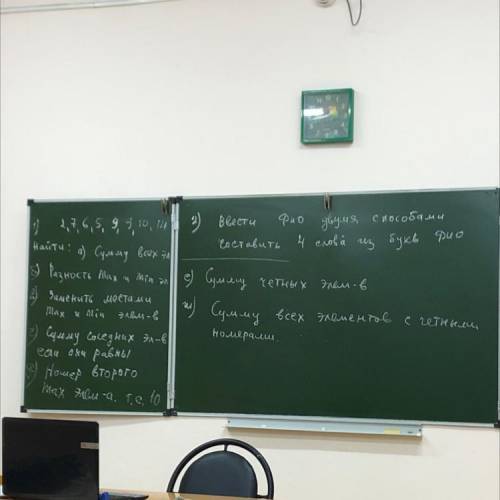 1) 2, 7, 6, 5, 9, 9, 10, 11
Найти: а) Сумму всех эл
Разность Max и Min эл
Заменить местами
Max и Min элем-в
Сумму соседних эл-в
если они равны
Номер второго
max элем-а. т.е. 10
2) Ввести ФИО двумя способами
составить 4 слова из букв ФИО
е) Сумму четных элем-в
ж) Сумму всех элементов с четными
номерами.